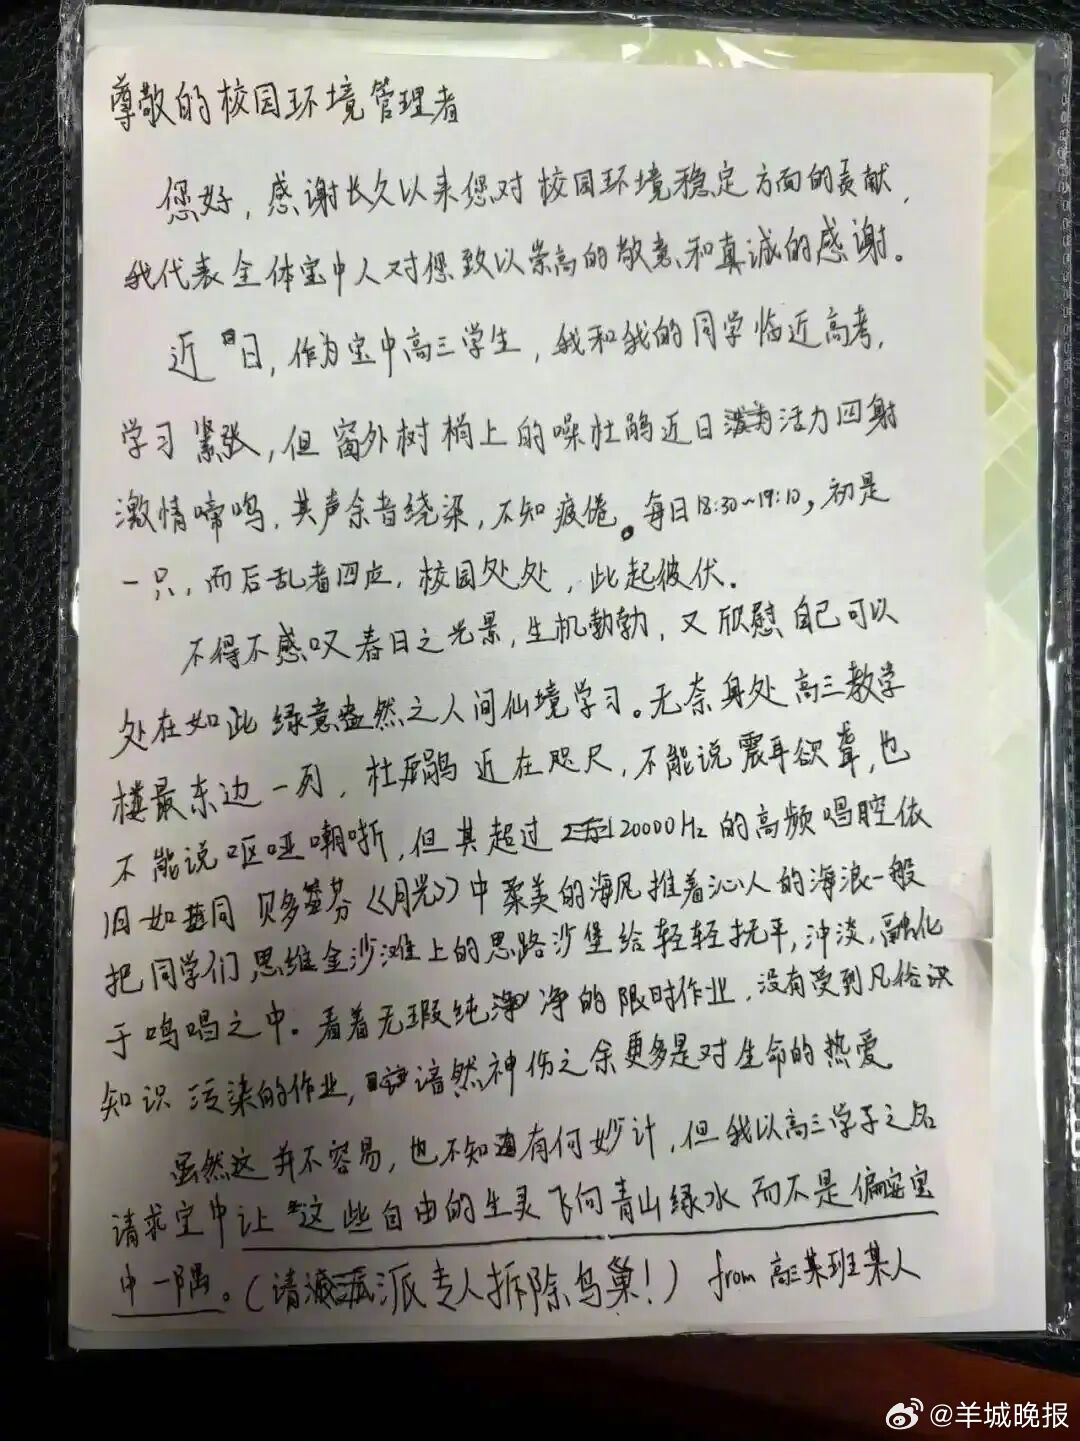 尊敬的校园环境管理者
您好，感谢长久以来您对校园环境稳定方面的贡献，
我代表全体宝中人对您致以崇高的敬意和真诚的感谢。
近日，作为宝中高三学生，我和我的同学临近高考，
学习紧张，但窗外树梢上的噪杜鹃近日活力四射
激情啼鸣，其声余音绕梁，不知疲倦。每日18:30~19:10，初是
一只，而后乱者四应，校园处处，此起彼伏。
不得不感叹春日之光景，生机勃勃，又欣慰自己可以
处在如此绿意盎然之人间仙境学习。无奈身处高三教学
楼最东边一列，杜鹃近在咫尺，不能说震耳欲聋，也
不能说呕哑嘲哳，但其超过20000Hz的高频唱腔依
旧如同贝多芬《月光》中柔美的海风推着沁人的海浪一般
把同学们思维金沙滩上的思路沙堡给轻轻抚平，冲淡，融化
于鸣唱之中。看着无瑕纯净的限时作业，没有受到凡俗识
知识污染的作业，谙然神伤之余更多是对生命的热爱
虽然这并不容易，也不知有何妙计，但我以高三学子之名
请求宝中让这些自由的生灵飞向青山绿水而不是偏安宝
中一隅。（请派专人拆除鸟巢！） from 高三某班某人
@羊城晚报